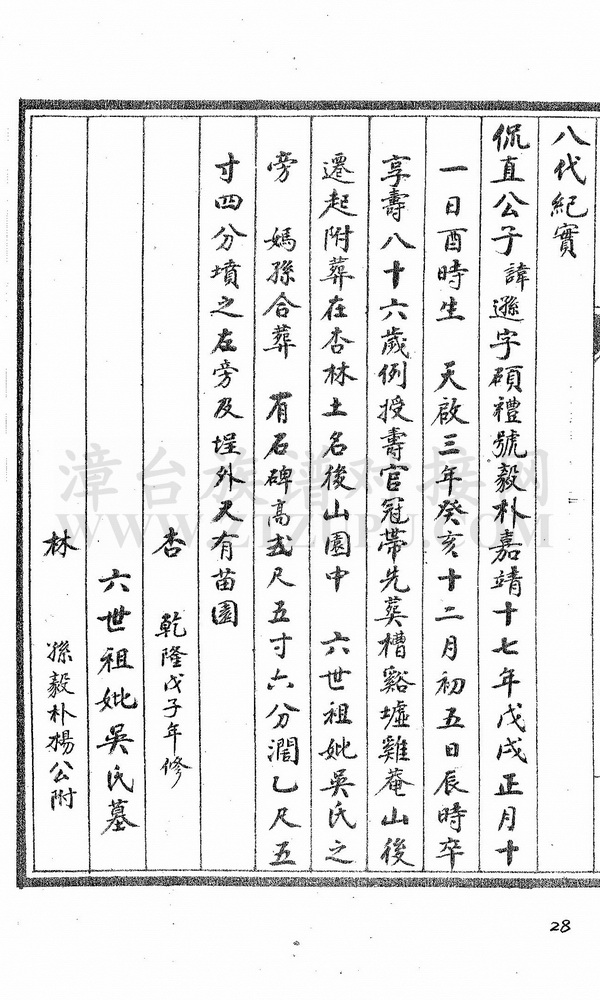 八代紀實
侃直公子 諱遜字碩禮號毅朴嘉靖十七年戊戌正月十
一日酉時生 天啟三年癸亥十二月初五日辰時卒
享壽八十六歲例授壽官冠帶先葬槽谿墟雞菴山後
遷起附葬在杏林土名後山園中 六世祖妣吳氏之
旁 媽孫合葬 有石碑高弍尺五寸六分濶乙尺五
寸四分墳之左旁及埕外又有苗園
杏 乾隆戊子年修
六世祖妣吳氏墓
林 孫毅朴楊公附
漳台族谱对接网
WWW.ZTZUPU.COM
28